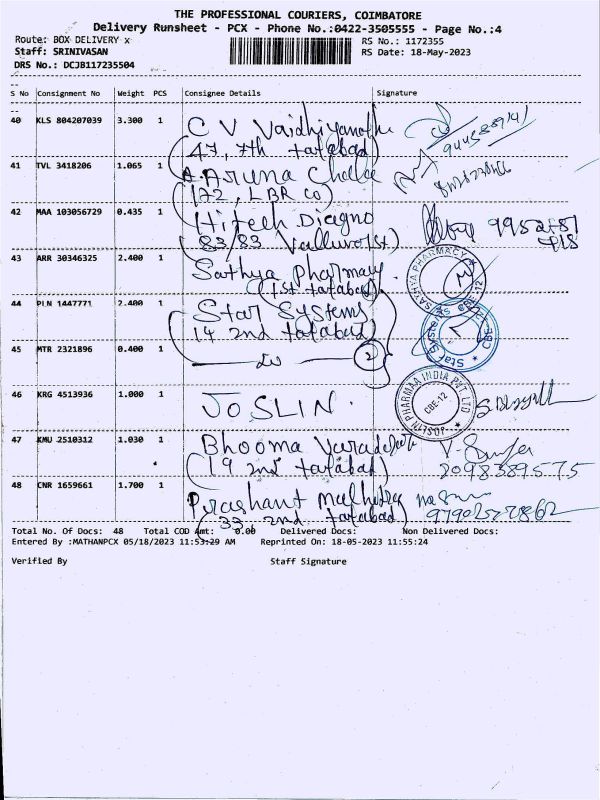 THE PROFESSIONAL COURIERS, COIMBATORE
Delivery Runsheet - PCX - Phone No.:0422-3505555 - Page No.:4
Route: BOX DELIVERY x
RS No.: 1172355
Staff: SRINIVASAN
RS Date: 18-May-2023
DRS No.: DCJB117235504
S No Consignment No Weight PCS Consignee Details Signature
40 KLS 804207039 3.300 1 C V Vaidhiyanathan
47, 7th tatabad
41 TVL 3418206 1.065 1 A. Aruna
172, LBR Co
42 MAA 103056729 0.435 1 Hitech Diagno
83/83 Valluvar St
43 ARR 30346325 2.400 1 Sathya Pharmacy
1st tatabad
SATHYA PHARMACY CBE-12
44 PLN 1447771 2.400 1 Star Systems
14 2nd tatabad
Star Systems CBE
45 MTR 2321896 0.400 1 2
46 KRG 4513936 1.000 1 JOSLIN.
JOSLIN PHARMAA INDIA PVT LTD CBE-12
47 KMU 2510312 1.030 1 Bhooma
19 2nd tatabad
48 CNR 1659661 1.700 1 Prashant Malhotra
33, 2nd tatabad
Total No. Of Docs: 48 Total COD Amt: 0.00 Delivered Docs: Non Delivered Docs:
Entered By :MATHANPCX 05/18/2023 11:53:29 AM Reprinted On: 18-05-2023 11:55:24
Verified By Staff Signature